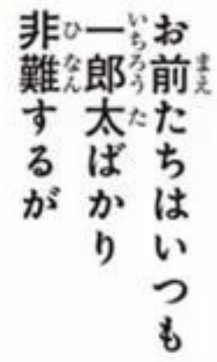 お前たちはいつも
一郎太ばかり
非難するが